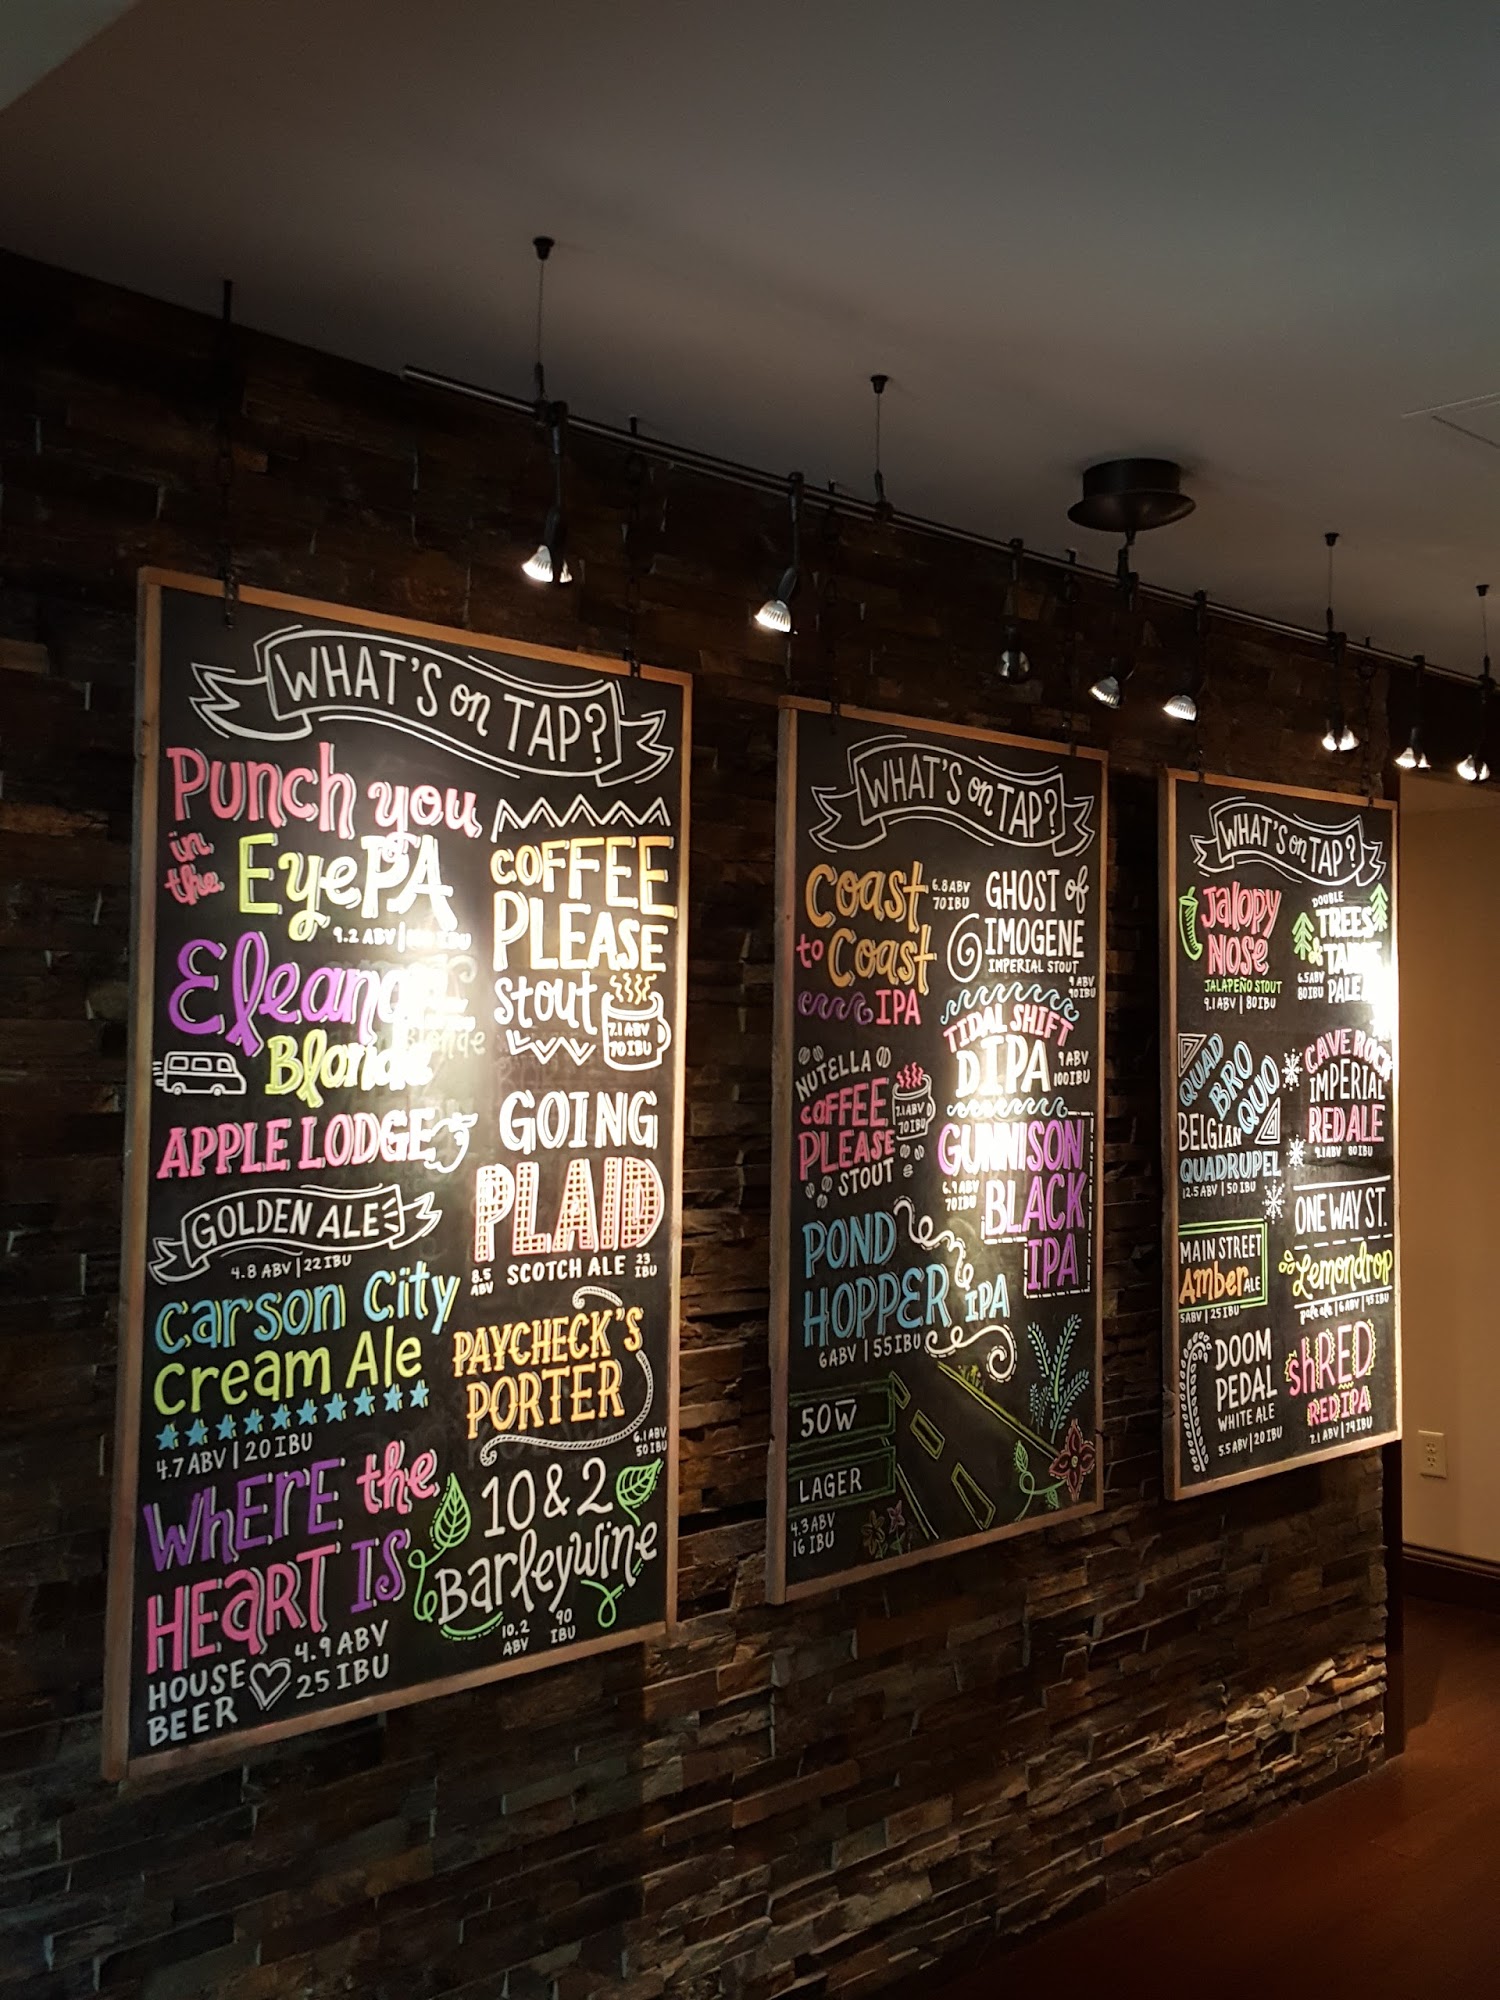 WHAT'S on TAP?
Punch you
in the
EyePA
9.2 ABV | IBU
Blonde
APPLE LODGE
GOLDEN ALE
4.8 ABV | 22 IBU
Carson City
Cream Ale
4.7 ABV | 20 IBU
WHERE the
HEART IS
HOUSE BEER
4.9 ABV
25 IBU
COFFEE
PLEASE
Stout
7.1 ABV
70 IBU
GOING
PLAID
8.5 ABV
SCOTCH ALE
23 IBU
PAYCHECK'S
PORTER
6.1 ABV
50 IBU
10 & 2
Barleywine
10.2 ABV
90 IBU
WHAT'S on TAP?
Coast
to Coast
IPA
6.8 ABV
70 IBU
NUTELLA
COFFEE
PLEASE
STOUT
7.1 ABV
70 IBU
POND
HOPPER IPA
6 ABV | 55 IBU
50W
LAGER
4.3 ABV
16 IBU
GHOST of
IMOGENE
IMPERIAL STOUT
9 ABV
90 IBU
TIDAL SHIFT
DIPA
9 ABV
100 IBU
GUNNISON
BLACK
IPA
6.9 ABV
70 IBU
WHAT'S on TAP?
Jalopy
NOSE
JALAPEÑO STOUT
9.1 ABV | 80 IBU
QUAD
BRO
QUO
BELGIAN
QUADRUPEL
12.5 ABV | 50 IBU
MAIN STREET
Amber ALE
5 ABV | 25 IBU
DOOM
PEDAL
WHITE ALE
5.5 ABV | 20 IBU
DOUBLE
TREES
6.5 ABV
80 IBU
PALE
CAVE ROCK
IMPERIAL
RED ALE
9.1 ABV 80 IBU
ONE WAY ST.
Lemondrop
pale ale | 6 ABV | 45 IBU
shRED
RED IPA
7.1 ABV | 74 IBU